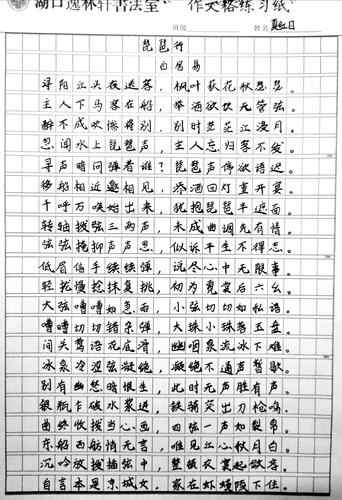 湖口逸林轩书法室“作文格练习纸”
班级 姓名
琵琶行
白居易
浔阳江头夜送客，枫叶荻花秋瑟瑟。
主人下马客在船，举酒欲饮无管弦。
醉不成欢惨将别，别时茫茫江浸月。
忽闻水上琵琶声，主人忘归客不发。
寻声暗问弹者谁？琵琶声停欲语迟。
移船相近邀相见，添酒回灯重开宴。
千呼万唤始出来，犹抱琵琶半遮面。
转轴拨弦三两声，未成曲调先有情。
弦弦掩抑声声思，似诉平生不得志。
低眉信手续续弹，说尽心中无限事。
轻拢慢捻抹复挑，初为霓裳后六幺。
大弦嘈嘈如急雨，小弦切切如私语。
嘈嘈切切错杂弹，大珠小珠落玉盘。
间关莺语花底滑，幽咽泉流冰下难。
冰泉冷涩弦凝绝，凝绝不通声暂歇。
别有幽愁暗恨生，此时无声胜有声。
银瓶乍破水浆迸，铁骑突出刀枪鸣。
曲终收拨当心画，四弦一声如裂帛。
东船西舫悄无言，唯见江心秋月白。
沉吟放拨插弦中，整顿衣裳起敛容。
自言本是京城女，家在虾蟆陵下住。